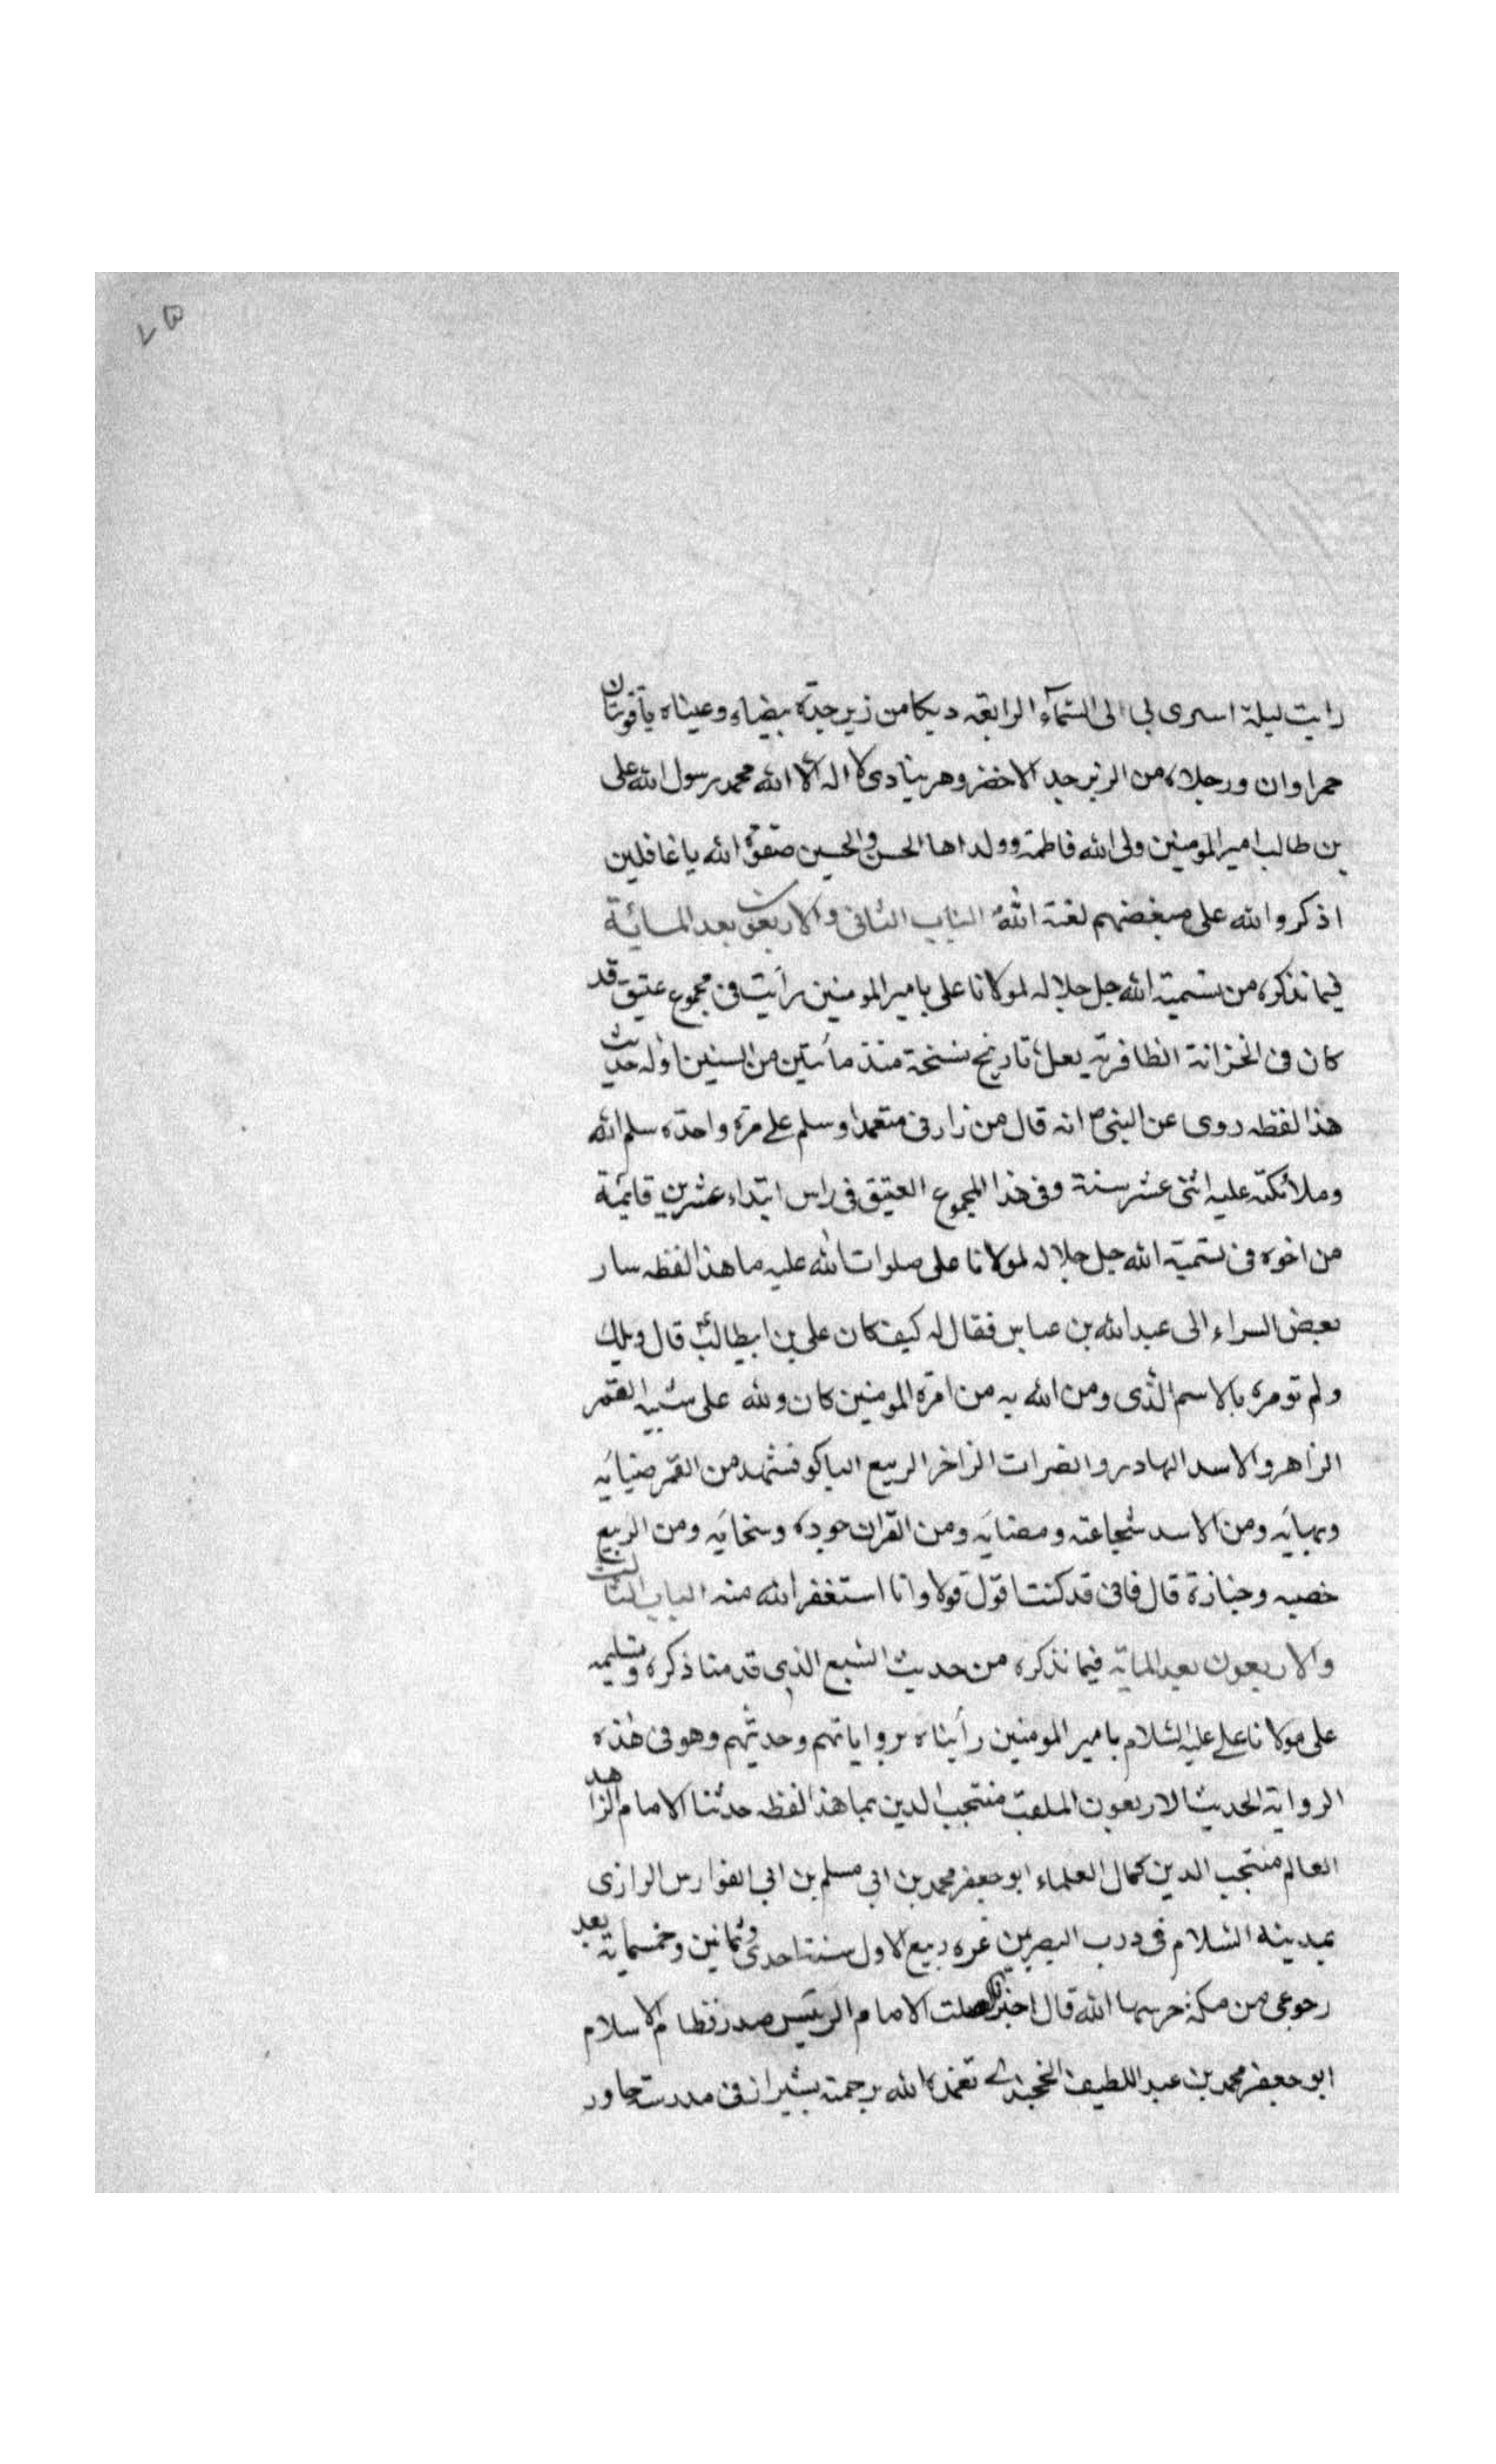 رايت ليلة اسرى بي الى السّمآء الرابعة ديكا من زبرجدّة بيضاء وعيناه ياقوتتان
حمراوان ورجلاه من الزبرجد الاخضر وهو ينادى لا اله الا الله محمد رسول الله على
بن طالب امير المومنين ولى الله فاطمة وولداها الحسن والحسين صفوة الله يا غافلين
اذكروا الله على مبغضهم لعنة الله الباب الثانى والاربعون بعد المائة
فيما نذكره من تسمية الله جل جلاله لمولانا على بامير المومنين رأيت فى مجموع عتيق قد
كان فى الخزانة الظافرية يعلى تاريخ نسخة منذ مأتين من السنين اوله حديث
هذا لفظه روى عن النبى ص انه قال من زارنى متعمدا وسلم على مرة واحدة سلم الله
وملائكته عليه اثنى عشر سنة وفى هذا المجموع العتيق فى راس ابتداء عشرين قايمة
من اخره فى تسمية الله جل جلاله لمولانا على صلوات الله عليه ما هذا لفظه سار
بعض السراء الى عبد الله بن عباس فقال له كيف كان على بن ابيطالب ع قال ويلك
ولم تومره بالاسم الّذى ومن الله به من امّره المومنين كان ولله على شبيه القمر
الزاهر والاسد الهادر والفرات الزاخر الربيع الباكو فشهد من القمر ضيايه
وبهايه ومن الاسد شجاعته ومضايه ومن القرات جوده وسخايه ومن الربيع
خصبه وحبازة قال فانى قد كنت اقول قولا وانا استغفر الله منه الباب الثالث
والاربعون بعد الماية فيما نذكره من حديث السّبع الذى قدمنا ذكره وتسليمه
على مولانا على عليه السّلام بامير المومنين رأيناه برواياتهم وحديثهم وهو فى هذه
الرواية الحديث الاربعون الملقب منتجب الدين بما هذا لفظه حدثنا الامام الزاهد
العالم منتجب الدين كمال العلماء ابو جعفر محمد بن ابى مسلم بن ابى الفوارس الرازى
بمدينة السّلام فى درب البصريين غره ربيع الاول سنة احدى وثمانين وخمسماية بعد
رجوعى من مكة حرسها الله قال الامام الرئيس صدر نظام الاسلام
ابو جعفر محمد بن عبد اللطيف الخجندى تغمده الله برحمته بشيراز فى مدرسته جاور